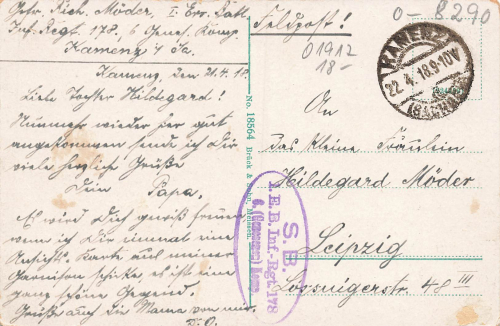 Gefr. Rich. Möder, I Ers. Batl.
Inf. Regt. 178, 6 Genes. Komp.
Kamenz i/Sa.
Feldpost!
0-8290
01912
18-
KAMENZ
22.4.18.9-10V
(SACHSEN)
Kamenz, den 21.4.18.
Liebe Tochter Hildegard!
Nunmehr wieder hier gut
angekommen sende ich Dir
viele herzliche Grüße
Dein Papa.
Es wird Dich gewiß freuen
wenn ich Dir einmal eine
Ansichts-Karte auf meiner
Garnison schicke es ist eine
ganz schöne Gegend.
Grüße auch die Mama von mir.
D.O.
No. 18564 Brück & Sohn, Meissen.
An
das kleine Fräulein
Hildegard Möder
Leipzig
Lössnigerstr. 48 III
S.B.
I.E.B. Inf.-Rgt. 178
6. (Genesenen) Komp.